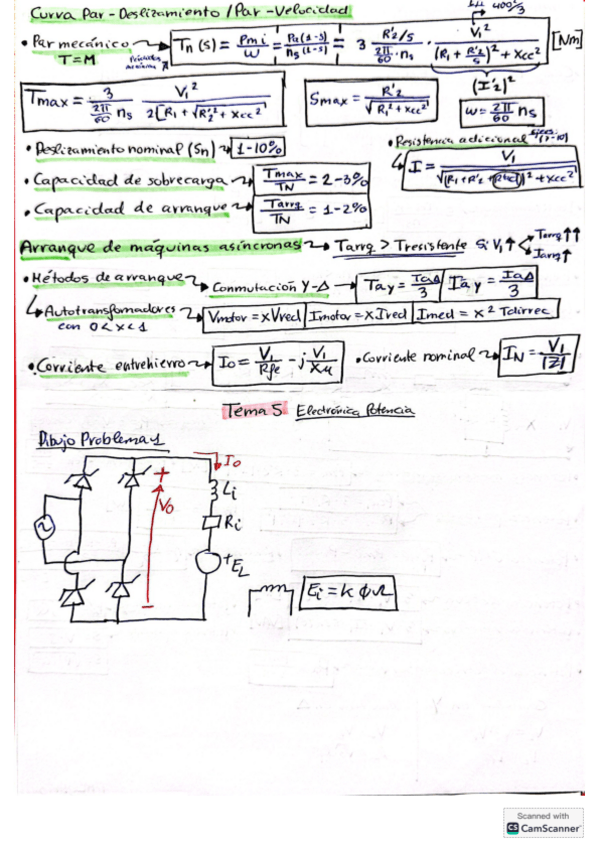 Curva Par-Deslizamiento / Par-Velocidad
400/√3
• Par mecánico → Tn (s) = Pmi/ω = Pa(1-s)/ns(1-s) = 3 R'2/s / (2π/60 · ns) · V1² / ((R1 + R'2/s)² + Xcc²) [Nm]
T = M
(I'2)²
Tmax = 3 / (2π/60 ns) V1² / 2[R1 + √R'2² + Xcc²]
Smax = R'2 / √R1² + Xcc²
ω = 2π/60 ns
• Deslizamiento nominal (Sn) → 1-10%
• Resistencia adicional
I = V1 / √(R1 + R'2 + R'ad)² + Xcc²
• Capacidad de sobrecarga → Tmax/TN = 2-3%
• Capacidad de arranque → Tarrq/TN = 1-2%
Arranque de máquinas asíncronas → Tarrq > Tresistente Si V1↑ Tarrq↑↑ Iarrq↑
• Métodos de arranque → Conmutación Y-Δ → Tay = TaΔ/3 Iay = IaΔ/3
↳ Autotransfomadores con 0 < x < 1 → Vmotor = xVred Imotor = xIred Imed = x² Tdirrec
• Corriente entrehierro → Io = V1/Rfe - j V1/Xμ • Corriente nominal → IN = V1/|Z|
Tema 5 Electrónica Potencia
Dibujo Problema 1
Io
+
Vo
Li
Ri
+ EL
-
Ei = k ϕ Ω
Scanned with
CS CamScanner